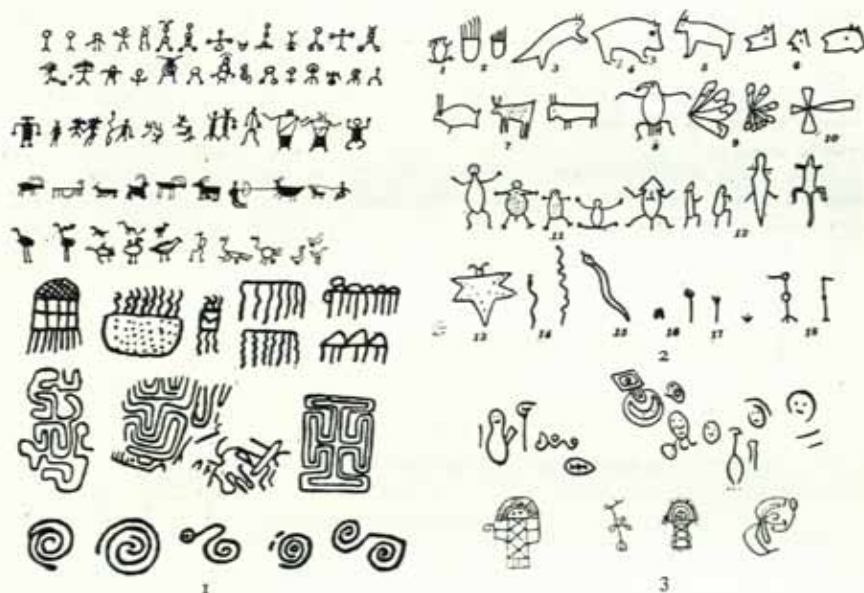 1 2 3 4 5 6
7 8 9 10
11 12
13 14 15 16 17 18
2
1 3